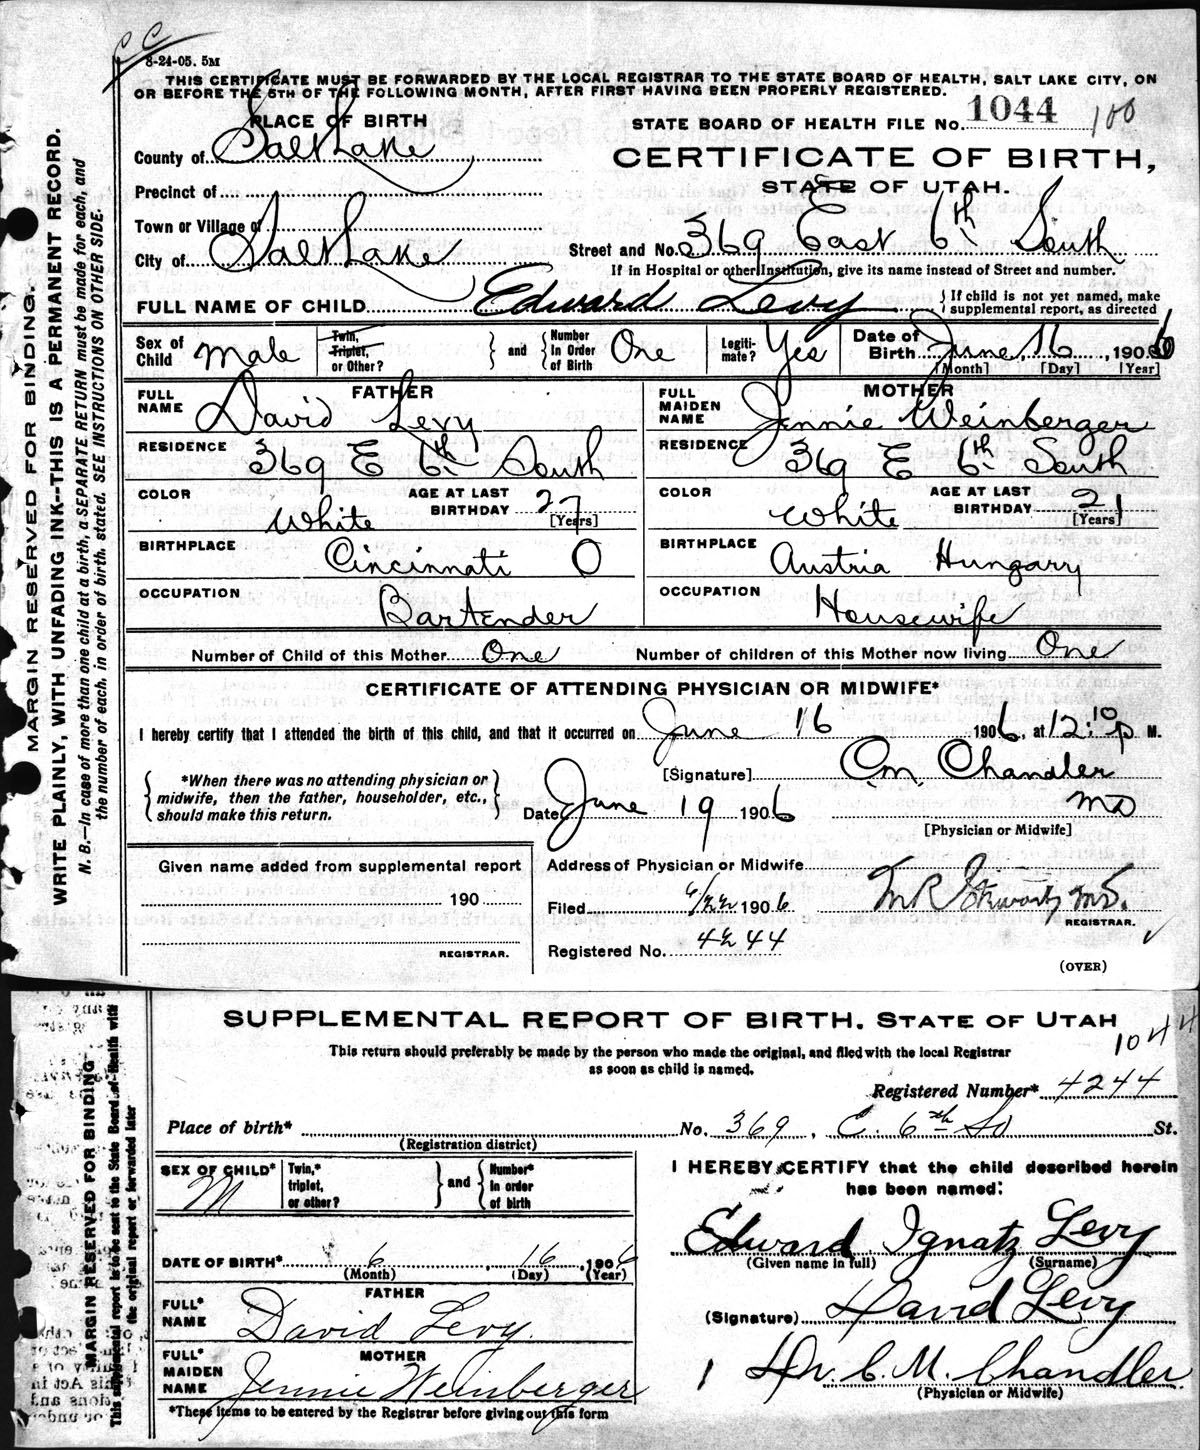 CC
8-24-05. 5M
THIS CERTIFICATE MUST BE FORWARDED BY THE LOCAL REGISTRAR TO THE STATE BOARD OF HEALTH, SALT LAKE CITY, ON
OR BEFORE THE 5TH OF THE FOLLOWING MONTH, AFTER FIRST HAVING BEEN PROPERLY REGISTERED.
MARGIN RESERVED FOR BINDING.
WRITE PLAINLY, WITH UNFADING INK--THIS IS A PERMANENT RECORD.
N. B.—In case of more than one child at a birth, a SEPARATE RETURN must be made for each, and
the number of each, in order of birth, stated. SEE INSTRUCTIONS ON OTHER SIDE.
PLACE OF BIRTH
County of Salt Lake
Precinct of
Town or Village of
City of Salt Lake
STATE BOARD OF HEALTH FILE No. 1044 100
CERTIFICATE OF BIRTH,
STATE OF UTAH.
Street and No. 369 East 6th South
If in Hospital or other Institution, give its name instead of Street and number.
FULL NAME OF CHILD Edward Levy } If child is not yet named, make supplemental report, as directed
Sex of Child Male Twin, Triplet, or Other? } and { Number In Order of Birth One Legiti-mate? Yes Date of Birth June, 16, 1906
[Month] [Day] [Year]
FATHER
FULL NAME David Levy
RESIDENCE 369 E 6th South
COLOR White AGE AT LAST BIRTHDAY 27 [Years]
BIRTHPLACE Cincinnati O
OCCUPATION Bartender
MOTHER
FULL MAIDEN NAME Jennie Weinberger
RESIDENCE 369 E 6th South
COLOR White AGE AT LAST BIRTHDAY 21 [Years]
BIRTHPLACE Austria Hungary
OCCUPATION Housewife
Number of Child of this Mother One Number of children of this Mother now living One
CERTIFICATE OF ATTENDING PHYSICIAN OR MIDWIFE*
I hereby certify that I attended the birth of this child, and that it occurred on June 16 1906, at 12:10 p M.
{ *When there was no attending physician or
midwife, then the father, householder, etc.,
should make this return. }
[Signature] C M Chandler
Date June 19 1906 MD
[Physician or Midwife]
Given name added from supplemental report
190
REGISTRAR.
Address of Physician or Midwife
Filed 6/22 1906 M R MD.
REGISTRAR.
Registered No. 4244
(OVER)
MARGIN RESERVED FOR BINDING
This supplemental report is to be sent to the State Board of Health with
the original report or forwarded later
SUPPLEMENTAL REPORT OF BIRTH. STATE OF UTAH
1044
This return should preferably be made by the person who made the original, and filed with the local Registrar
as soon as child is named.
Registered Number* 4244
Place of birth* No. 369, E. 6th So St.
(Registration district)
SEX OF CHILD* M Twin,* triplet, or other? } and { Number* In order of birth
DATE OF BIRTH* 6, 16, 1906
(Month) (Day) (Year)
FATHER
FULL* NAME David Levy
MOTHER
FULL* MAIDEN NAME Jennie Weinberger
*These items to be entered by the Registrar before giving out this form
I HEREBY CERTIFY that the child described herein
has been named:
Edward Ignatz Levy
(Given name in full) (Surname)
(Signature) David Levy
Dr. C. M. Chandler
(Physician or Midwife)